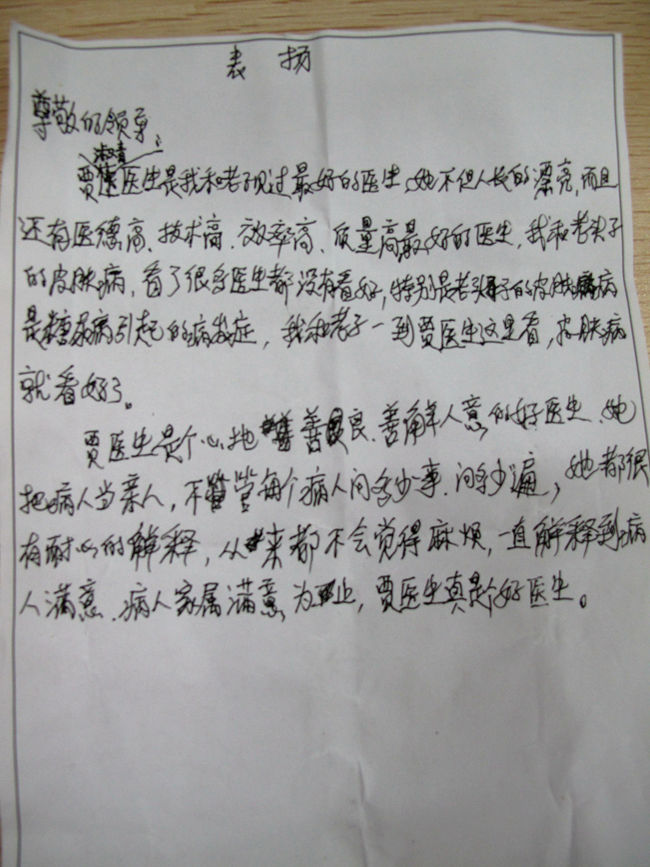 表扬
尊敬的领导：
淑青
贾医生是我和老子见过最好的医生、她不但人长的漂亮，而且
还有医德高、技术高、效率高、质量高最好的医生，我和老头子
的皮肤病，看了很多医生都没有看好，特别是老头子的皮肤病
是糖尿病引起的病发症，我和老子一到贾医生这里看，皮肤病
就看好了。
贾医生是个心地善良、善解人意的好医生、她
把病人当亲人，不管每个病人问多少事、问多少遍，她都很
有耐心的解释，从来都不会觉得麻烦，一直解释到病
人满意、病人家属满意为止，贾医生真是个好医生。